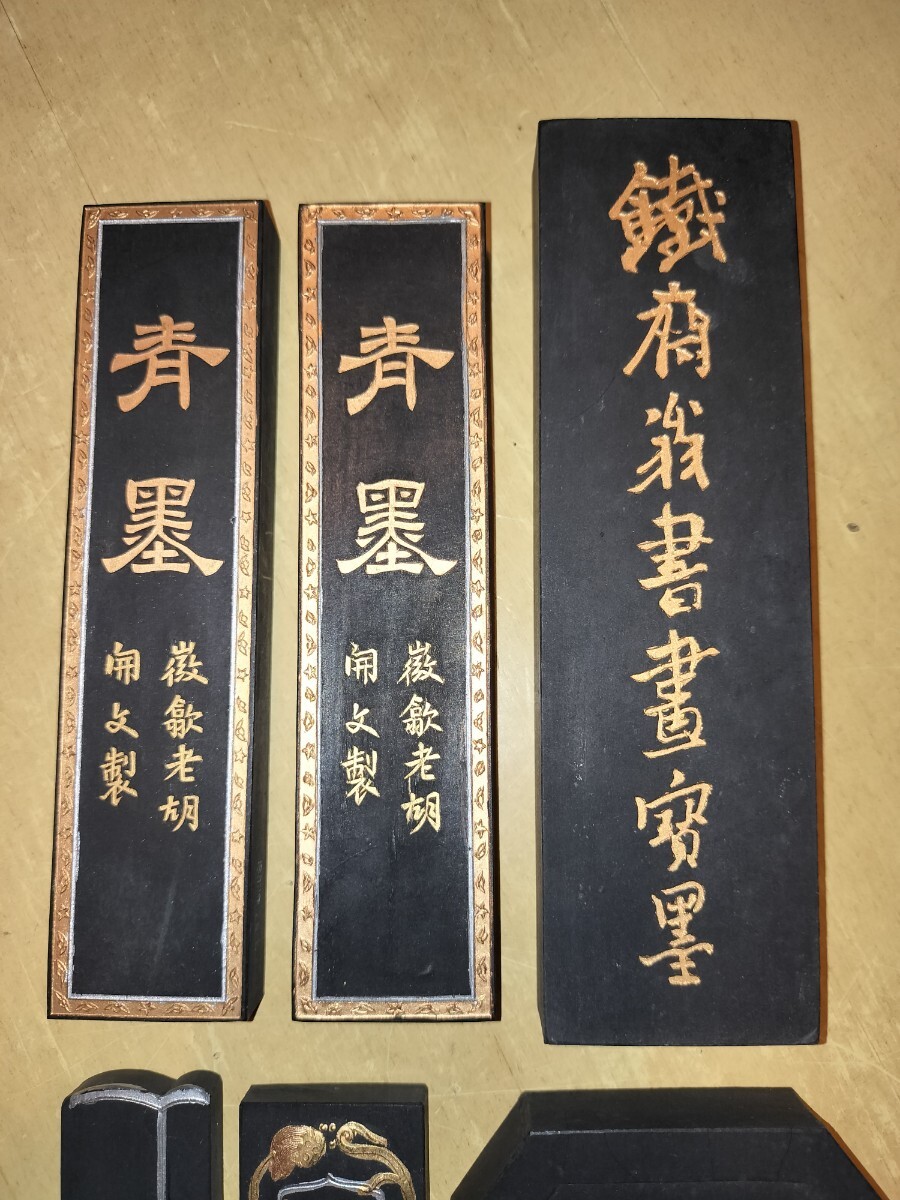 青墨
徽歙老胡
開文製
青墨
徽歙老胡
開文製
鐵齋翁書畫寶墨